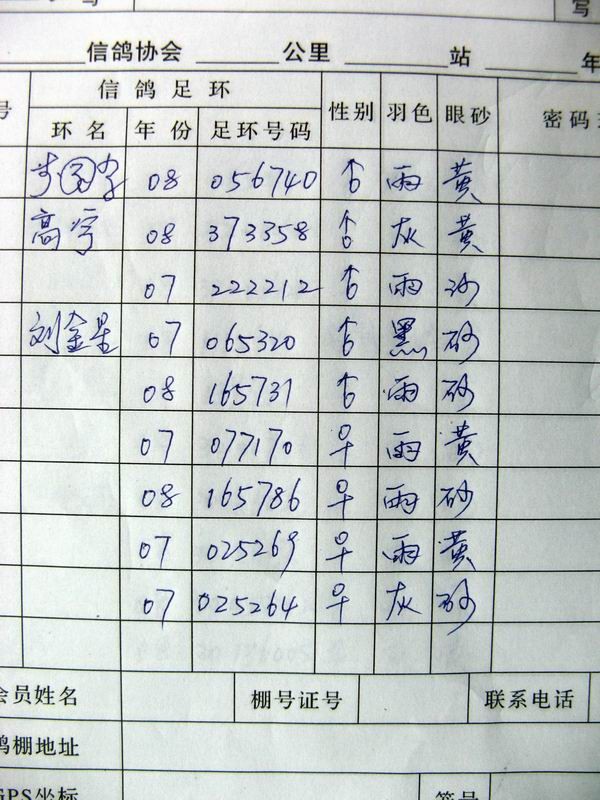 写
信鸽协会 公里 站 年
号 信鸽足环 性别 羽色 眼砂 密码
环名 年份 足环号码
08 056740 ♂ 雨 黄
高宇 08 373358 ♂ 灰 黄
07 222212 ♂ 雨 沙
刘金星 07 065320 ♂ 黑 砂
08 165731 ♂ 雨 砂
07 077170 ♀ 雨 黄
08 165786 ♀ 雨 砂
07 025269 ♀ 雨 黄
07 025264 ♀ 灰 砂
会员姓名 棚号证号 联系电话
鸽棚地址
GPS坐标 签号